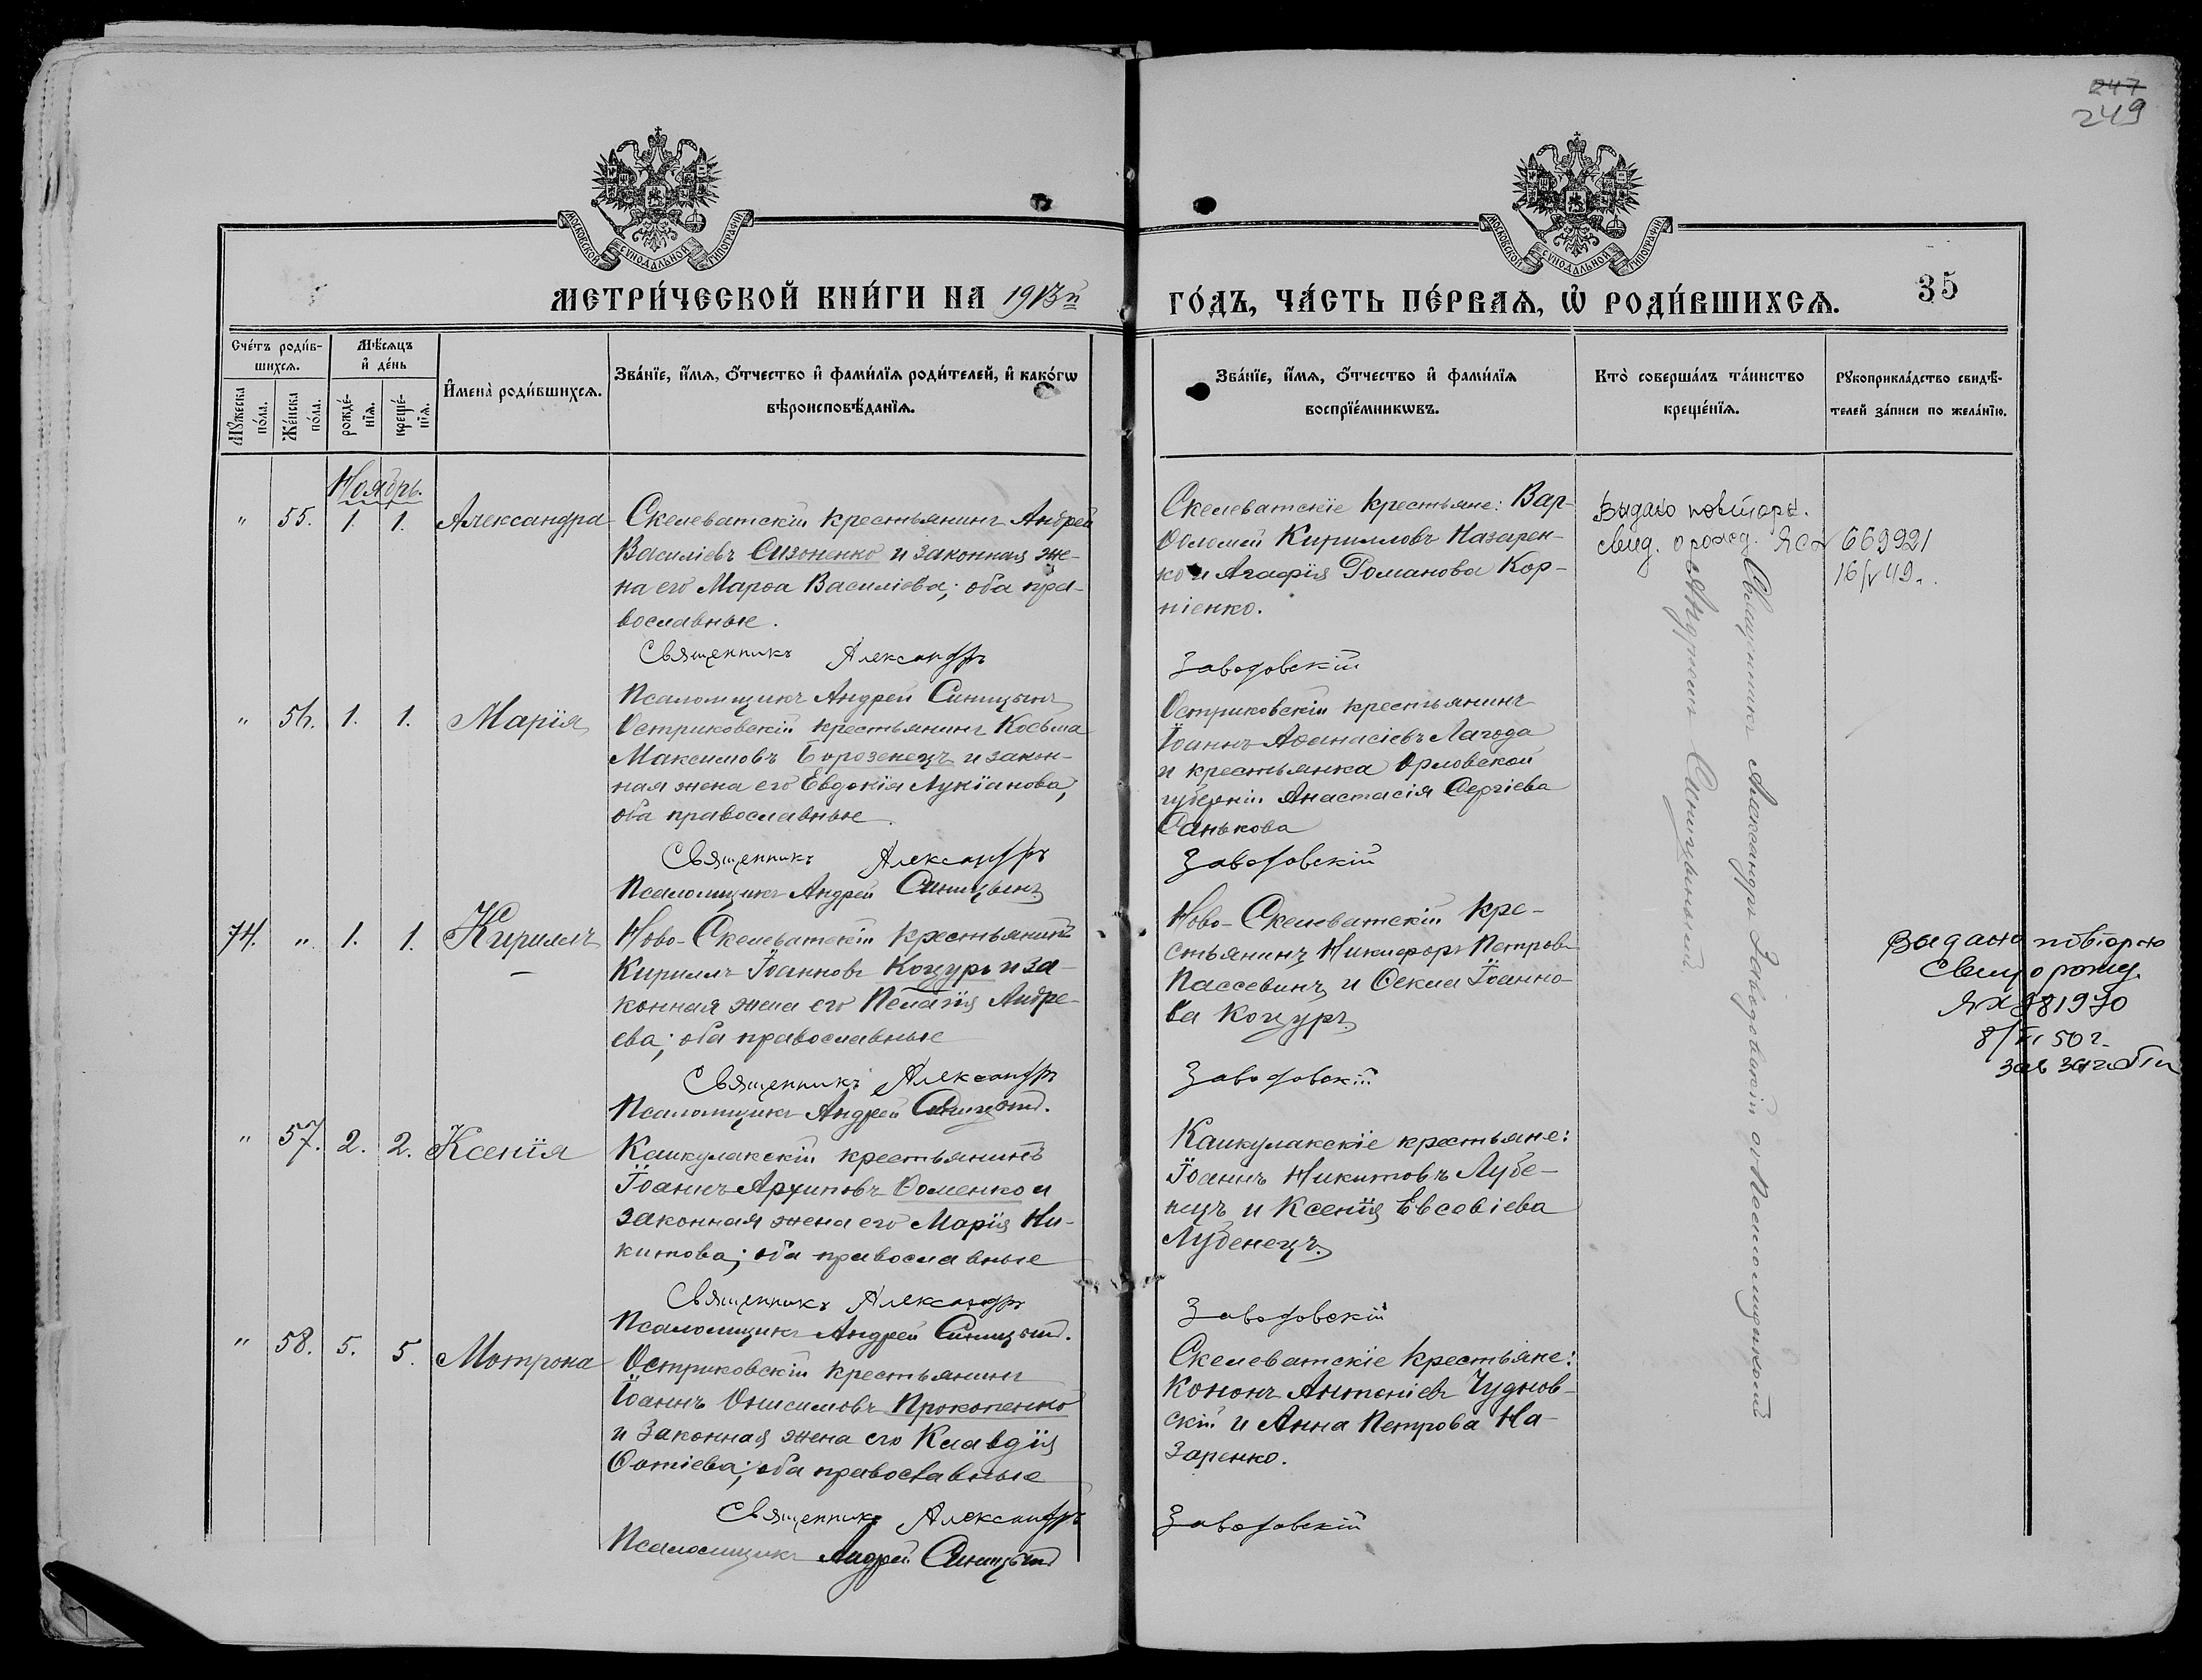 247
249
МОСКОВСКОЙ СѴНОДАЛЬНОЙ ТИПОГРАФІИ
МОСКОВСКОЙ СѴНОДАЛЬНОЙ ТИПОГРАФІИ
МЕТРИ́ЧЕСКОЙ КНИ́ГИ НА 1913й
ГО́ДЪ, ЧА́СТЬ ПЕ́РВАѦ, Ѡ҆ РОДИ́ВШИХСѦ.
35
Сче́тъ роди́в-
шихсѧ.
Мꙋжеска по́ла.
Же́нска по́ла.
Мѣ́сѧцъ и҆ де́нь
рожде́-нїѧ.
креще́-нїѧ.
И҆мена̀ роди́вшихсѧ.
Зва́нїе, и҆́мѧ, ѻ҆́тчество и҆ фами́лїѧ роди́телей, и҆ како́гѡ
вѣроисповѣ́данїѧ.
Зва́нїе, и҆́мѧ, ѻ҆́тчество и҆ фами́лїѧ
воспрїе́мникѡвъ.
Кто̀ соверша́лъ та́инство
креще́нїѧ.
Рꙋкоприкла́дство свидѣ́-
телей за́писи по жела́нїю.
Ноябрь.
" 55. 1. 1. Александра
Скелеватскій крестьянинъ Андрей
Василіевъ Сизоненко и законная же-
на его Марѳа Василіева; оба пра-
вославные.
Священникъ Александръ
Псаломщикъ Андрей Синицынъ
Скелеватскіе крестьяне: Вар-
ѳоломей Кирилловъ Назарен-
ко и Агафія Романова Кор-
ніенко.
Заводовскій
Выдано повторн.
свид. о рожд. ЯСХ 669921
16/V 49.
Священникъ Александръ Заводовскій съ Псаломщикомъ
Андреемъ Синицынымъ
" 56. 1. 1. Марія
Остриковскій крестьянинъ Косьма
Максимовъ Борозенецъ и закон-
ная жена его Евдокія Лукіанова,
оба православные.
Священникъ Александръ
Псаломщикъ Андрей Синицынъ
Остриковскій крестьянинъ
Іоаннъ Аѳанасіевъ Лагода
и крестьянка Орловской
губерніи Анастасія Сергіева
Санькова
Заводовскій
74. " 1. 1. Кириллъ
Ново-Скелеватскій крестьянинъ
Кириллъ Іоанновъ Коцуръ и за-
конная жена его Пелагія Андре-
ева; оба православные
Священникъ Александръ
Псаломщикъ Андрей Синицынъ.
Ново-Скелеватскій кре-
стьянинъ Никифоръ Петровъ
Пассевинъ и Ѳекла Іоанно-
ва Коцуръ.
Заводовскій
Выдано повторно
свид о рожд.
881970
8/ 50 г.
зав
" 57. 2. 2. Ксенія
Каикулакскій крестьянинъ
Іоаннъ Архиповъ Ѳоменко и
законная жена его Марія Ни-
китова; оба православные
Священникъ Александръ
Псаломщикъ Андрей Синицынъ.
Каикулакскіе крестьяне:
Іоаннъ Никитовъ Лубе-
нецъ и Ксенія Евсевіева
Лубенецъ.
Заводовскій
" 58. 5. 5. Мотрона
Остриковскій крестьянинъ
Іоаннъ Онисимовъ Прокопенко
и законная жена его Клавдія
Ѳотіева; оба православные
Священникъ Александръ
Псаломщикъ Андрей Синицынъ
Скелеватскіе крестьяне:
Кононъ Антоніевъ Чуднов-
скій и Анна Петрова На-
заренко.
Заводовскій